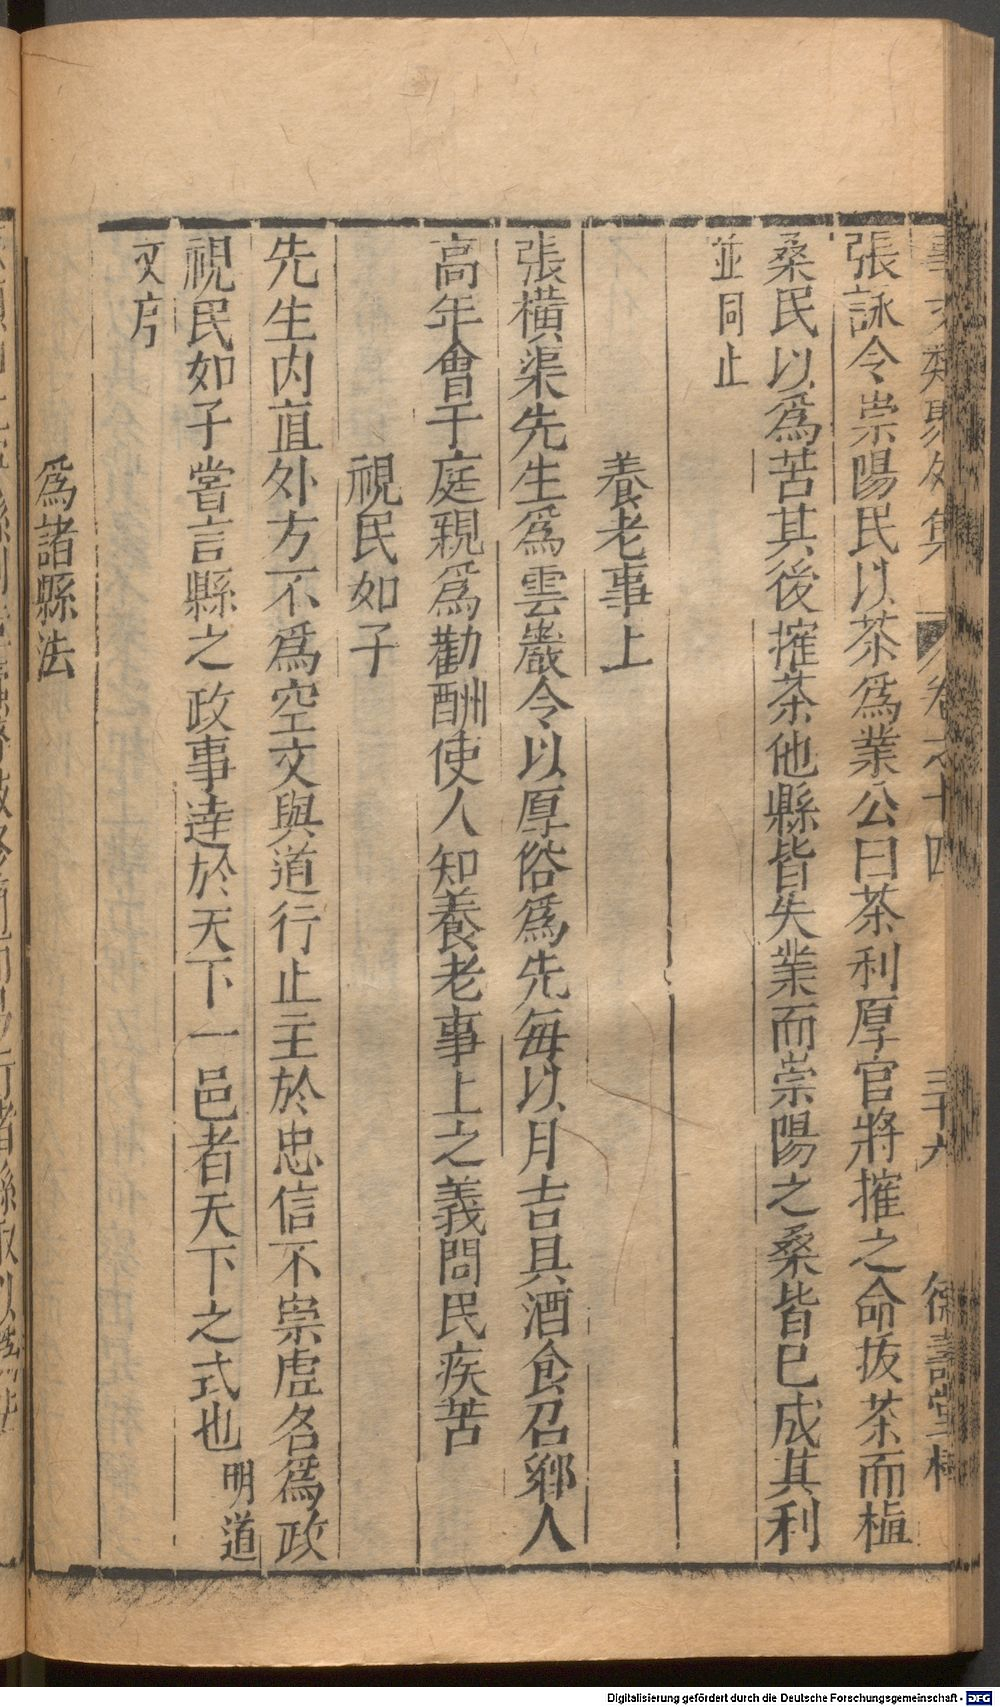 事文類聚外集 卷之十四 三十九 德壽堂梓
張詠令崇陽民以茶爲業公曰茶利厚官將搉之命拔茶而植
桑民以爲苦其後搉茶他縣皆失業而崇陽之桑皆已成其利
並同止
養老事上
張横渠先生爲雲巖令以厚俗爲先每以月吉具酒食召鄉人
高年會于庭親爲勸酬使人知養老事上之義問民疾苦
視民如子
先生内直外方不爲空文與道行止主於忠信不崇虛名爲政
視民如子嘗言縣之政事達於天下一邑者天下之式也明道
文序
爲諸縣法
Digitalisierung gefördert durch die Deutsche Forschungsgemeinschaft - DFG